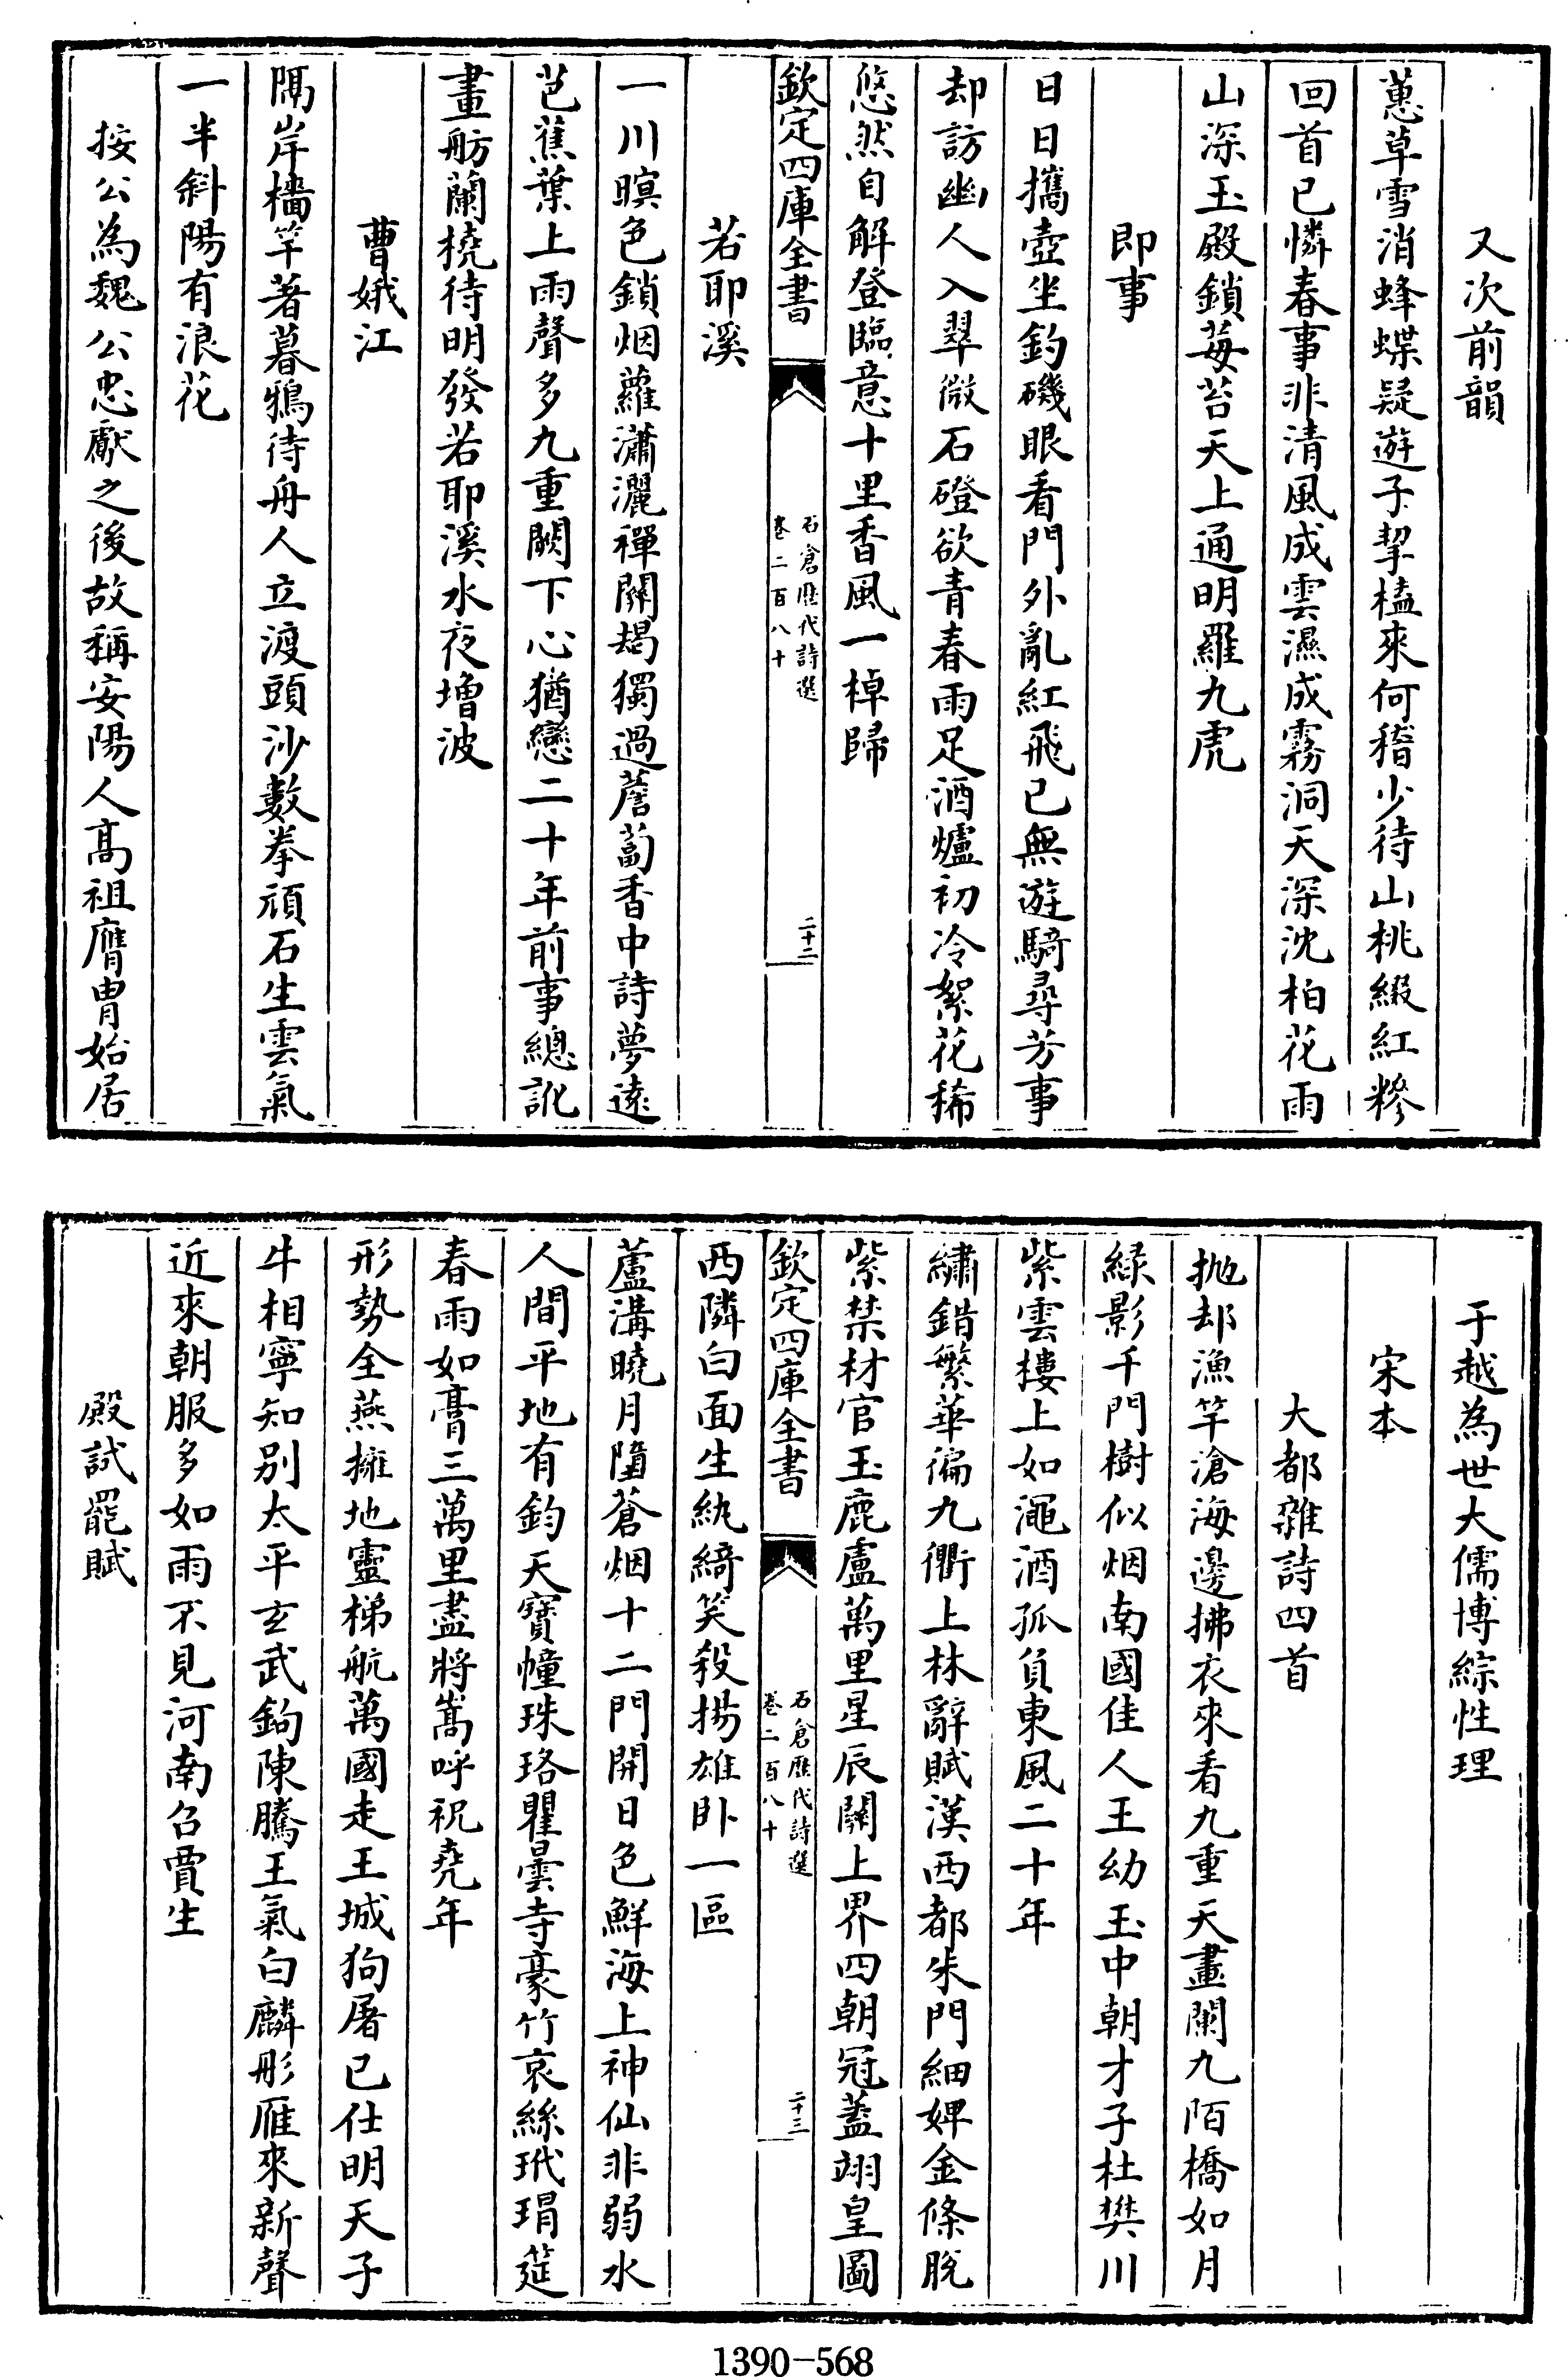 又次前韻
蕙草雪消蜂蝶疑遊子挈榼來何稽少待山桃綴紅糝
回首已憐春事非清風成雲濕成霧洞天深沈柏花雨
山深玉殿鎖莓苔天上通明羅九虎
即事
日日攜壺坐釣磯眼看門外亂紅飛已無遊騎尋芳事
却訪幽人入翠微石磴欲青春雨足酒爐初冷絮花稀
悠然自解登臨意十里香風一棹歸
欽定四庫全書
石倉歷代詩選
卷二百八十
二十二
若耶溪
一川暝色鎖烟蘿瀟灑禪關朅獨過薝蔔香中詩夢遠
芭蕉葉上雨聲多九重闕下心猶戀二十年前事總訛
畫舫蘭橈待明發若耶溪水夜增波
曹娥江
隔岸檣竿著暮鴉待舟人立渡頭沙數拳頑石生雲氣
一半斜陽有浪花
按公為魏公忠獻之後故稱安陽人高祖膺胄始居
于越為世大儒博綜性理
宋本
大都雜詩四首
抛却漁竿滄海邊拂衣來看九重天畫闌九陌橋如月
綠影千門樹似烟南國佳人王幼玉中朝才子杜樊川
紫雲樓上如澠酒孤負東風二十年
繡錯繁華徧九衢上林辭賦漢西都朱門細婢金條脫
紫禁材官玉鹿盧萬里星辰關上界四朝冠蓋翊皇圖
欽定四庫全書
石倉歷代詩選
卷二百八十
二十三
西隣白面生紈綺笑殺揚雄卧一區
蘆溝曉月墮蒼烟十二門開日色鮮海上神仙非弱水
人間平地有鈞天寶幢珠珞瞿曇寺豪竹哀絲玳瑁筵
春雨如膏三萬里盡將嵩呼祝堯年
形勢全燕擁地靈梯航萬國走王城狗屠已仕明天子
牛相寧知別太平玄武鉤陳騰王氣白麟彤雁來新聲
近來朝服多如雨不見河南召賈生
殿試罷賦
1390-568